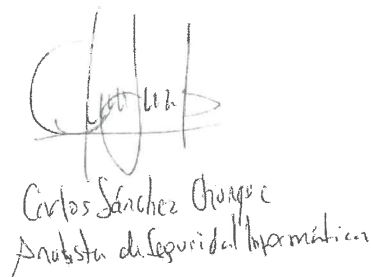 Carlos Sánchez Choque
Analista de Seguridad Informática